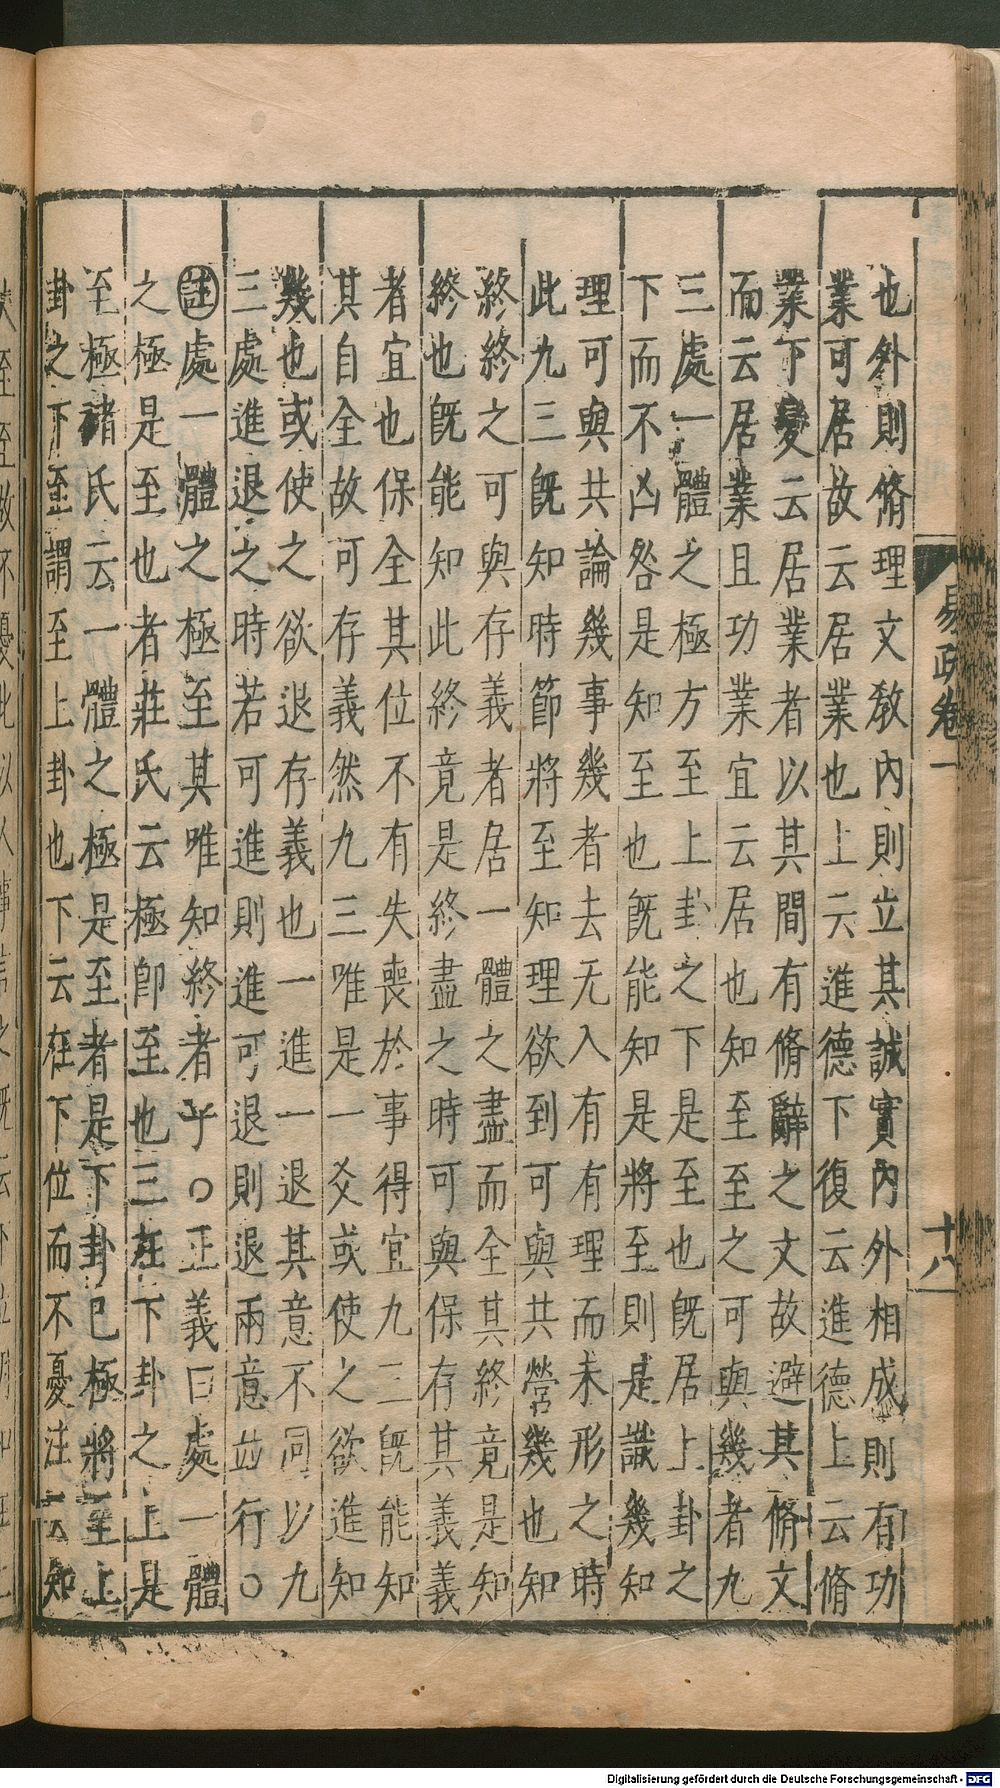 也外則脩理文教內則立其誠實內外相成則有功
業可居故云居業也上云進德下復云進德上云脩
業下變云居業者以其間有脩辭之文故避其脩文
而云居業且功業宜云居也知至至之可與幾者九
三處一體之極方至上卦之下是至也旣居上卦之
下而不凶咎是知至也旣能知是將至則是識幾知
理可與共論幾事幾者去无入有有理而未形之時
此九三旣知時節將至知理欲到可與共營幾也知
終終之可與存義者居一體之盡而全其終竟是知
終也旣能知此終竟是終盡之時可與保存其義義
者宜也保全其位不有失喪於事得宜九三旣能知
其自全故可存義然九三唯是一爻或使之欲進知
幾也或使之欲退存義也一進一退其意不同以九
三處進退之時若可進則進可退則退兩意並行○
註處一體之極至其唯知終者乎○正義曰處一體
之極是至也者莊氏云極卽至也三在下卦之上是
至極褚氏云一體之極是至者是下卦已極將至上
卦之下至謂至上卦也下云在下位而不憂注云知
易疏卷一
十八
Digitalisierung gefördert durch die Deutsche Forschungsgemeinschaft - DFG